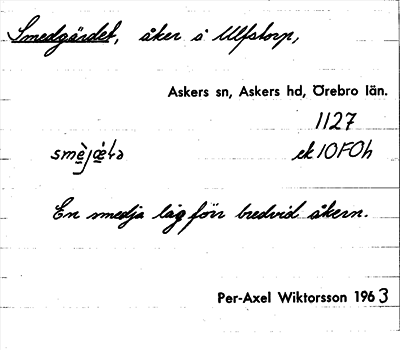 Smedgärdet, åker å Ulfstorp,
Askers sn, Askers hd, Örebro län.
1127
ek 10F0h
En smedja låg förr bredvid åkern.
Per-Axel Wiktorsson 1963